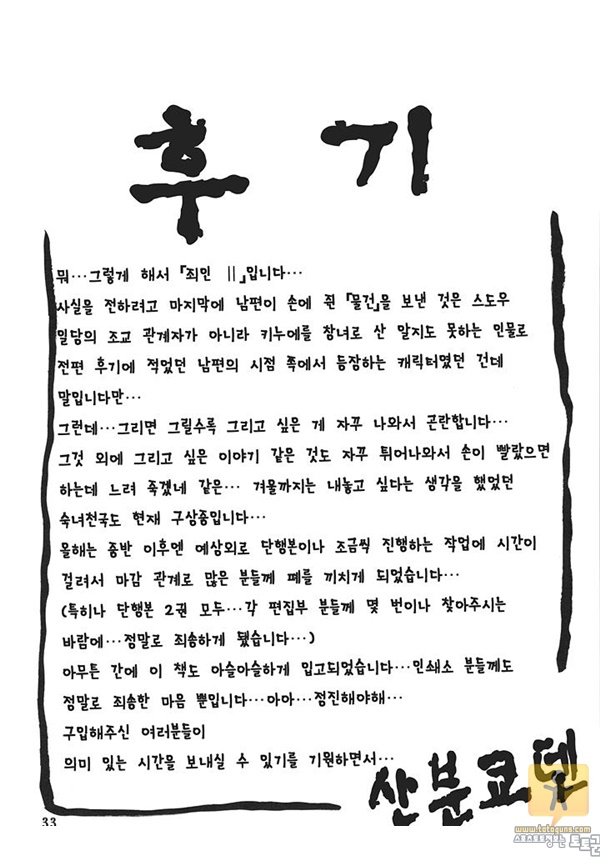 후 기
뭐…그렇게 해서 「죄인 Ⅱ」입니다…
사실을 전하려고 마지막에 남편이 손에 쥔 「물건」을 보낸 것은 스도우
일당의 조교 관계자가 아니라 키누에를 창녀로 산 알지도 못하는 인물로
전편 후기에 적었던 남편의 시점 쪽에서 등장하는 캐릭터였던 건데
말입니다만…
그런데…그리면 그릴수록 그리고 싶은 게 자꾸 나와서 곤란합니다…
그것 외에 그리고 싶은 이야기 같은 것도 자꾸 튀어나와서 손이 빨랐으면
하는데 느려 죽겠네 같은… 겨울까지는 내놓고 싶다는 생각을 했었던
숙녀천국도 현재 구상중입니다…
올해는 중반 이후엔 예상외로 단행본이나 조금씩 진행하는 작업에 시간이
걸려서 마감 관계로 많은 분들께 폐를 끼치게 되었습니다…
(특히나 단행본 2권 모두…각 편집부 분들께 몇 번이나 찾아주시는
바람에…정말로 죄송하게 됐습니다…)
아무튼 간에 이 책도 아슬아슬하게 입고되었습니다…인쇄소 분들께도
정말로 죄송한 마음 뿐입니다…아아…정진해야해…
구입해주신 여러분들이
의미 있는 시간을 보내실 수 있기를 기원하면서…
산분쿄덴
33
www.totoguns.com
토토군